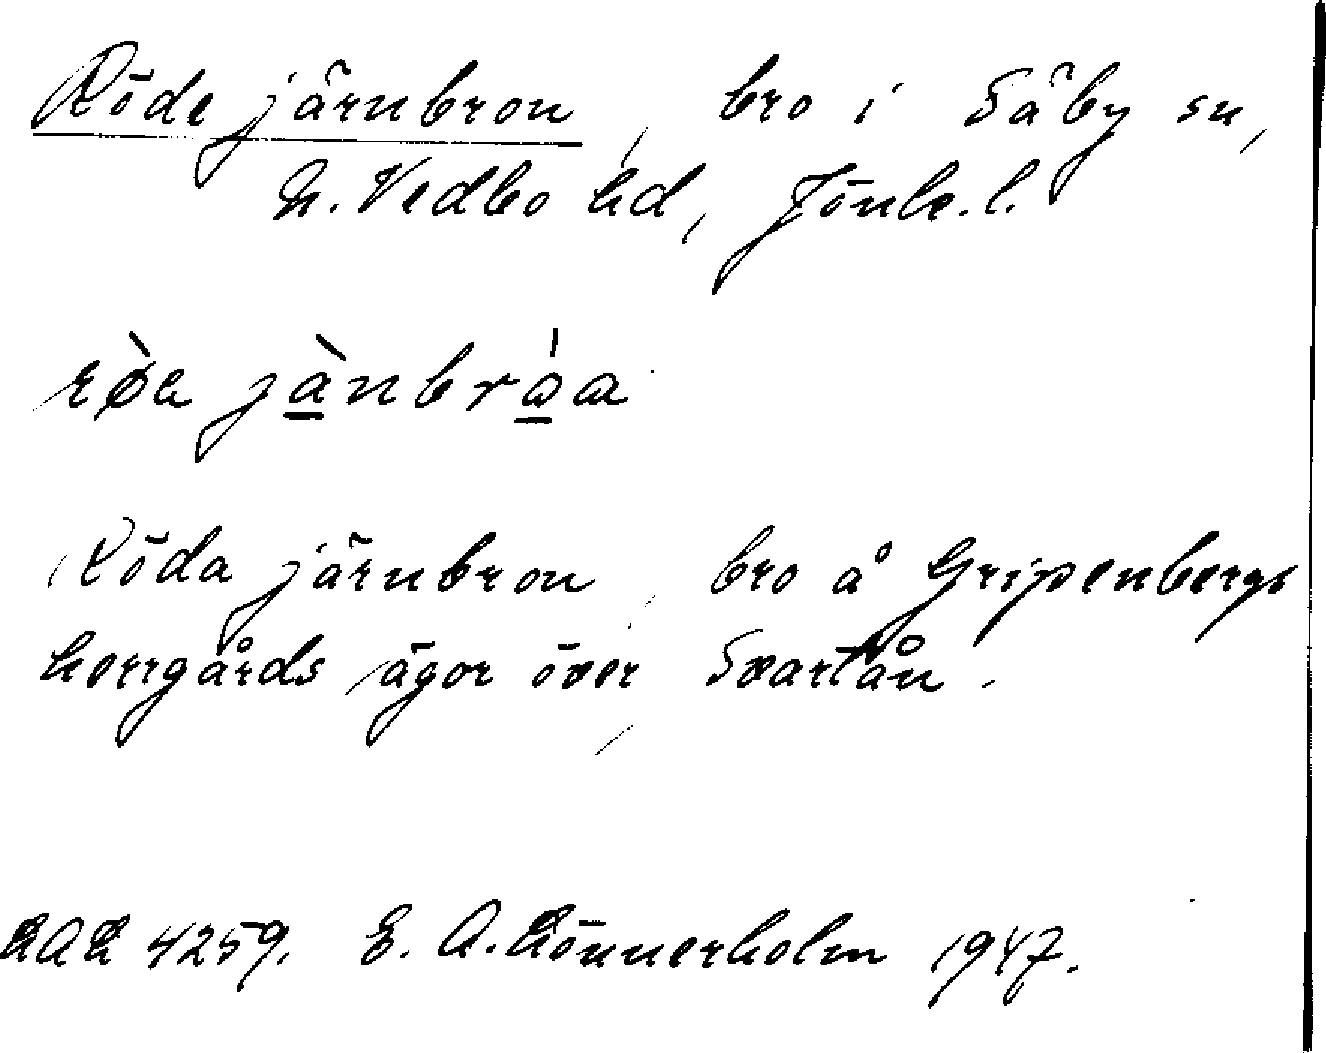 Röde järnbron, bro i Säby sn,
N. Vedbo hd, Jönk. l.
Röda järnbron, bro å Gripenbergs
herrgårds ägor över Svartån.
4259. E. A. Lönnerholm 1947.